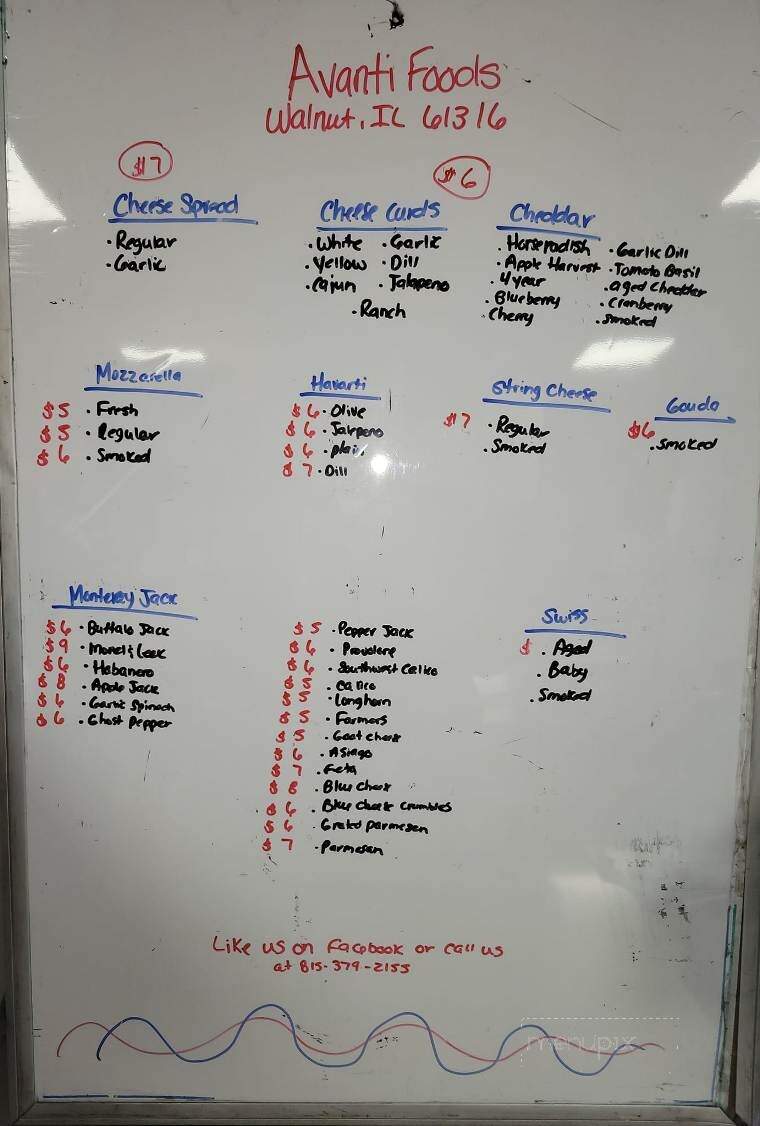 Avanti Foods
Walnut, IL 61316
$7
Cheese Spread
• Regular
• Garlic
$6
Cheese Curds
• White • Garlic
• Yellow • Dill
• Cajun • Jalapeno
• Ranch
Cheddar
• Horseradish • Garlic Dill
• Apple Harvest • Tomato Basil
• 4 year • aged Cheddar
• Blueberry • Cranberry
Cherry • Smoked
Mozzarella
$5 • Fresh
$5 • Regular
$6 • Smoked
Havarti
$6 • Olive
$6 • Jalepeno
$6 • plain
$7 • Dill
String Cheese
$7 • Regular
• Smoked
Gouda
$6
• Smoked
Monterey Jack
$6 • Buffalo Jack
$9 • Morel & Leek
$6 • Habanero
$8 • Apple Jack
$6 • Garlic Spinach
$6 • Ghost Pepper
$5 • Pepper Jack
$6 • Provolone
$6 • Southwest Calico
$5 • Calico
$5 • Longhorn
$5 • Farmers
$5 • Goat
$6 • Asiago
$7 • Feta
$8 • Blue
$6 • Blue Crumbles
$6 • Grated parmesan
$7 • Parmesan
Swiss
$ • Aged
• Baby
• Smoked
Like us on Facebook or call us
at 815-379-2155
menupix